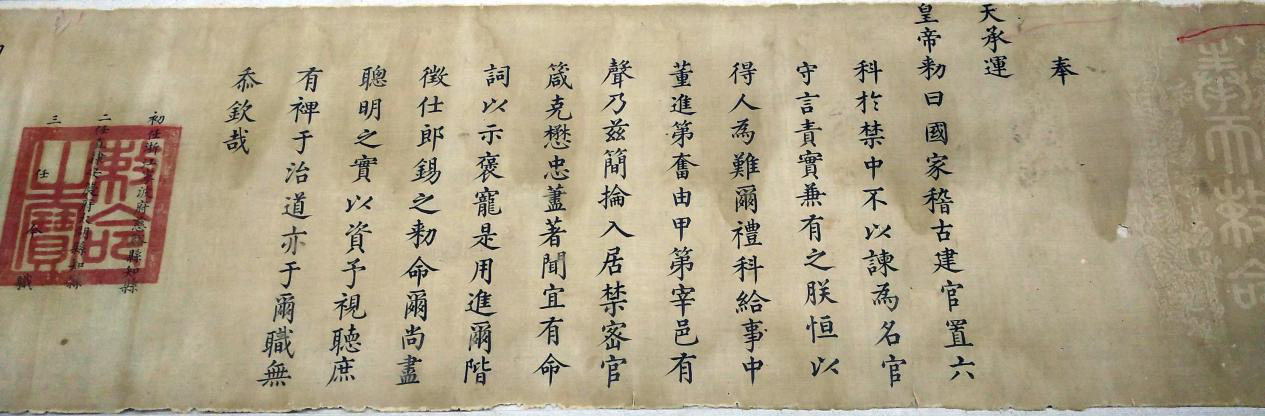 奉天敕命
奉
天承運
皇帝勅曰國家稽古建官置六
科於禁中不以諫為名官
守言責實兼有之朕恒以
得人為難爾禮科給事中
董進第奮由甲第宰邑有
聲乃茲簡掄入居禁密官
箴克懋忠藎著聞宜有命
詞以示褒寵是用進爾階
徵仕郎錫之勅命爾尚盡
聰明之實以資予視聽庶
有裨于治道亦于爾職無
忝欽哉
初任浙江寧波府慈谿縣知縣
二任縣知縣
三任今職
敕命之寶